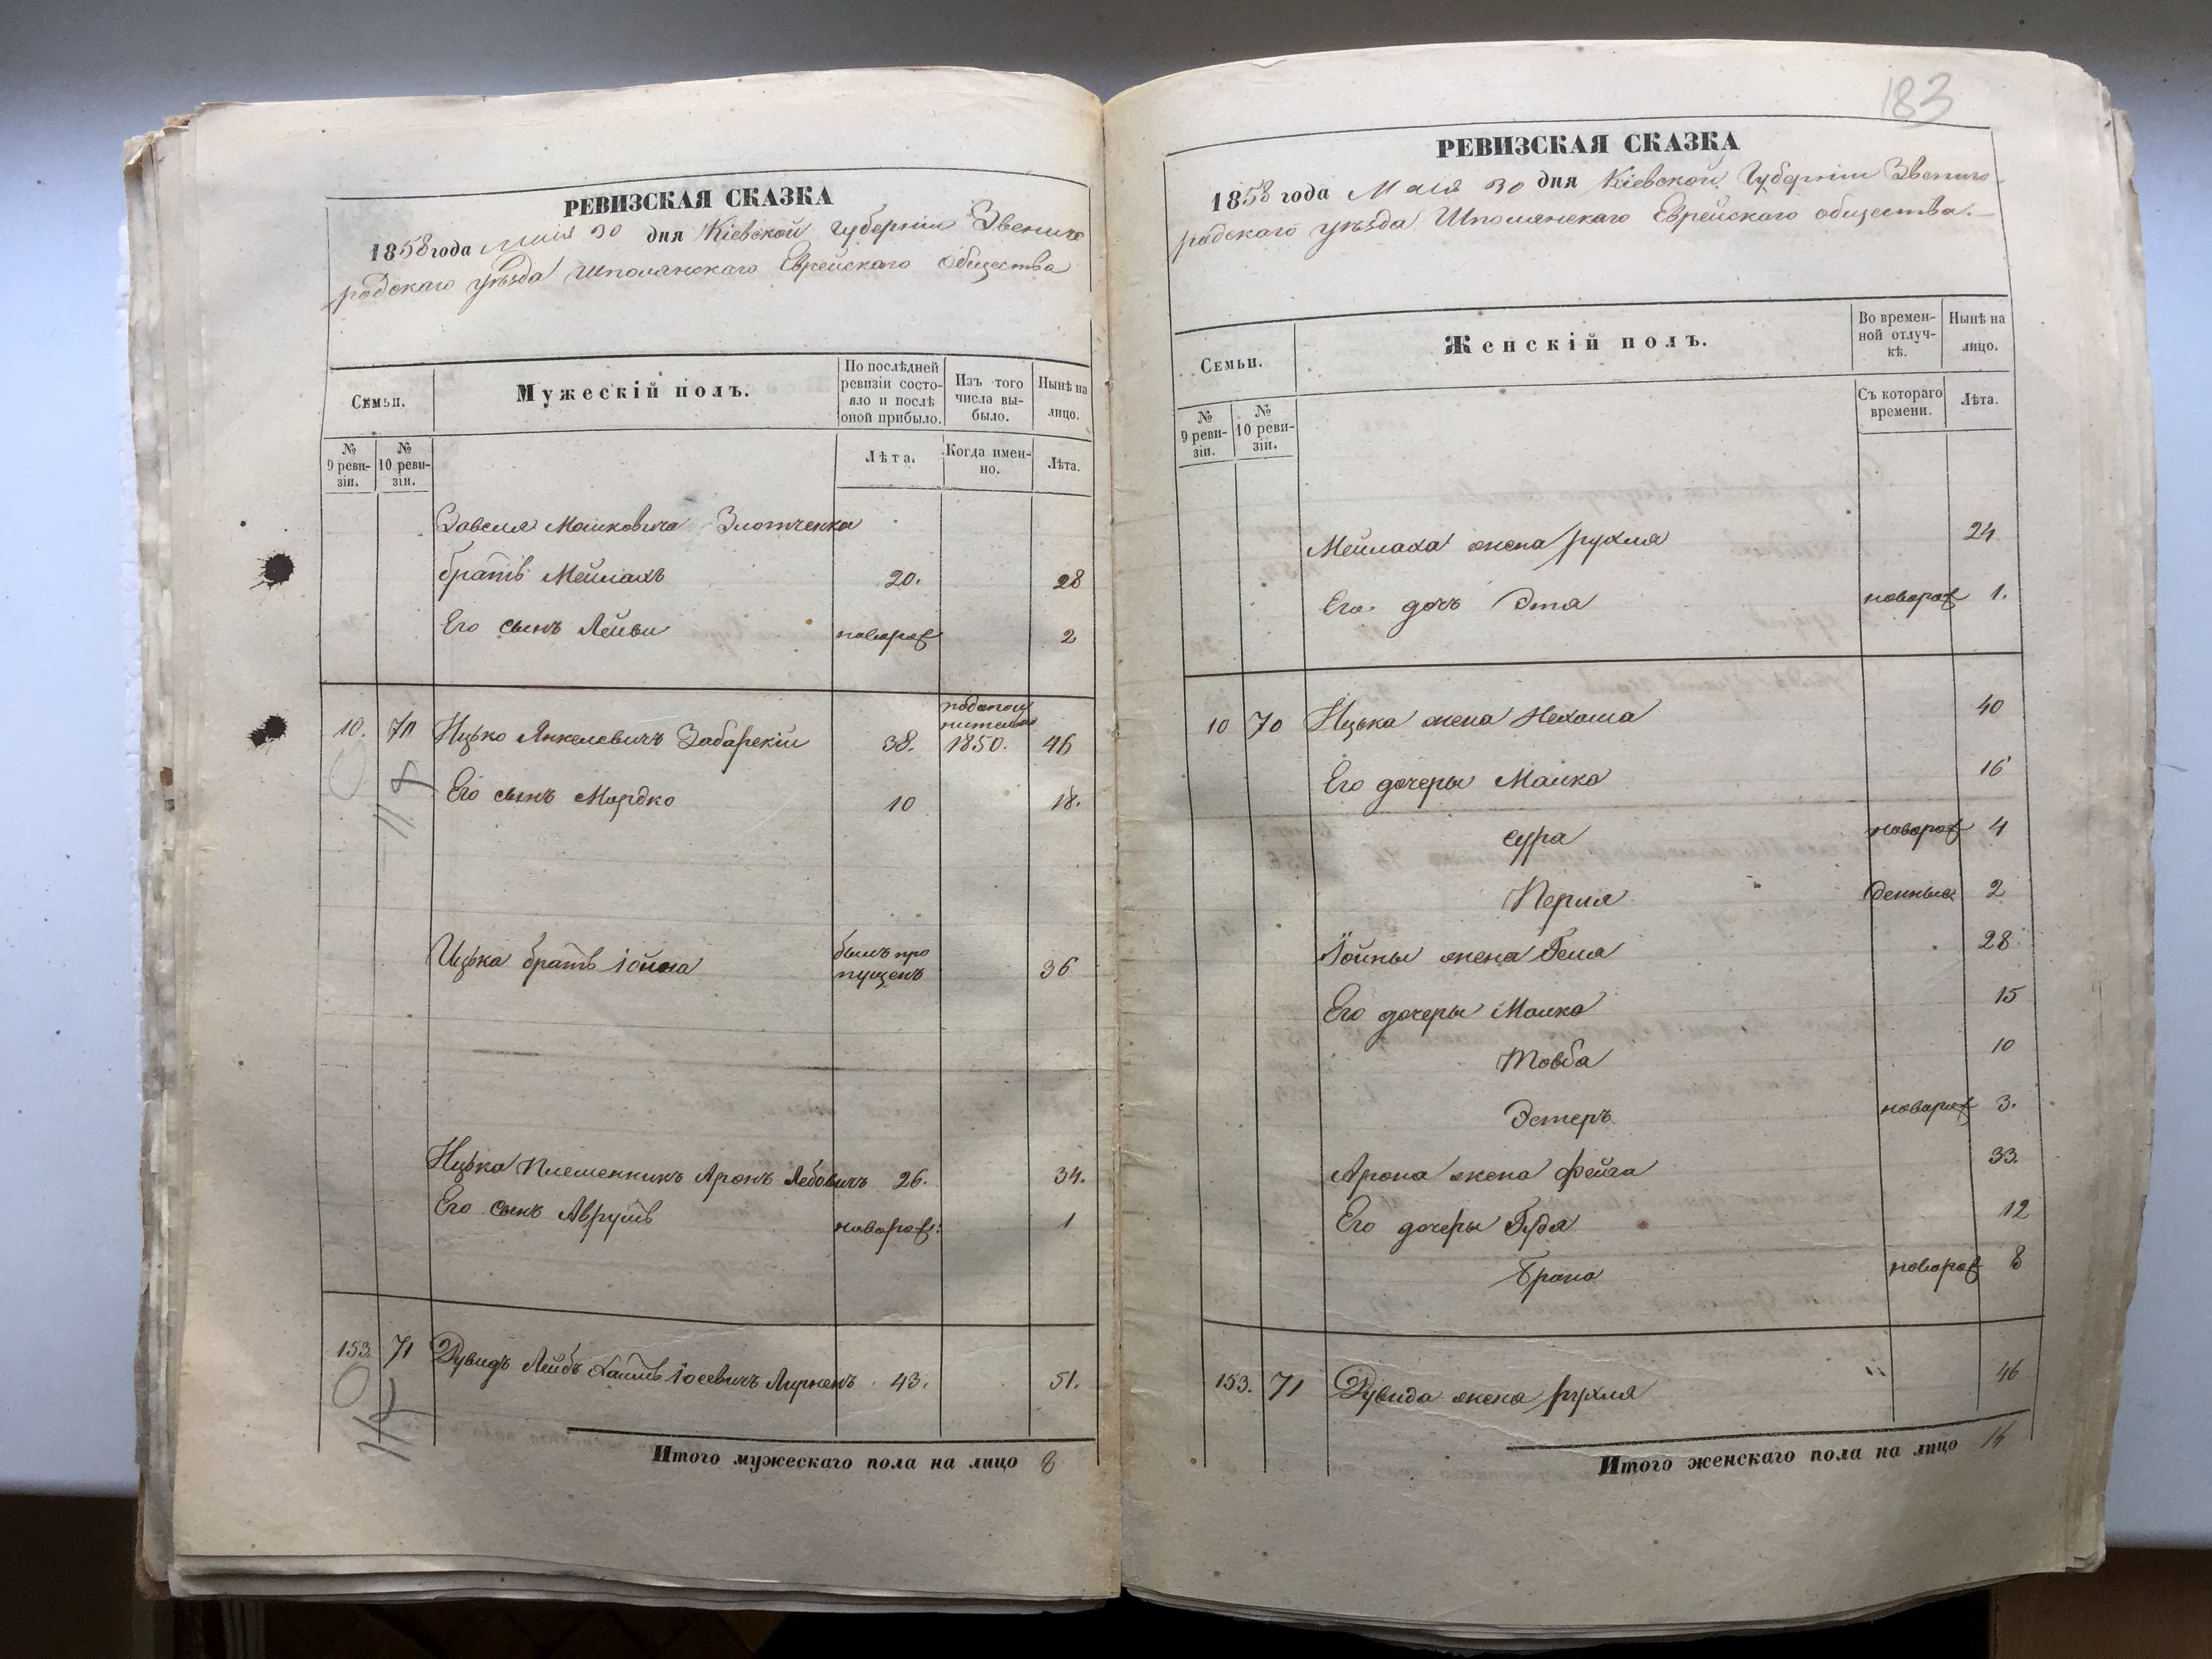 РЕВИЗСКАЯ СКАЗКА
1858 года Мая 30 дня Кіевской Губерніи Звениго
родскаго уѣзда Шполянскаго Еврейскаго общества
Семьи.
Мужескій полъ.
По послѣдней ревизіи состояло и послѣ оной прибыло.
Изъ того числа выбыло.
Нынѣ на лицо.
№ 9 ревизіи.
№ 10 ревизіи.
Лѣта.
Когда именно.
Лѣта.
Завеля Мошковича Злотченка
братъ Мейлахъ 20. 28
Его сынъ Лейви новорож 2
10. 70 Ицько Янкелевичъ Забарскій 38. 1850. 46
Его сынъ Мордко 10 18.
Ицька братъ Іойна былъ про
пущенъ 36
Ицька Племенникъ Аронъ Лебовичъ 26. 34.
Его сынъ Аврумъ новорож: 1
153. 71 Дувидъ Лейбъ Хаимъ Іосевичъ 43. 51.
Итого мужескаго пола на лицо 8
183
РЕВИЗСКАЯ СКАЗКА
1858 года Мая 30 дня Кіевской Губерніи Звениго-
родскаго уѣзда Шполянскаго Еврейскаго общества.
Семьи.
Женскій полъ.
Во временной отлучкѣ.
Нынѣ на лицо.
№ 9 ревизіи.
№ 10 ревизіи.
Съ котораго времени.
Лѣта.
Мейлаха жена рухля 24
Его дочь Этя новорож 1.
10 70 Ицька жена Нехама 40
Его дочеры Малка 16
Сура новорож 4
Перля денные 2
Іойны жена Геля 28
Его дочеры Малка 15
Товба 10
Эстеръ новорож 3.
Арона жена Фейга 33.
Его дочеры Гудя 12
Брана новорож 8
153. 71 Дувида жена рухля 46
Итого женскаго пола на лицо 14